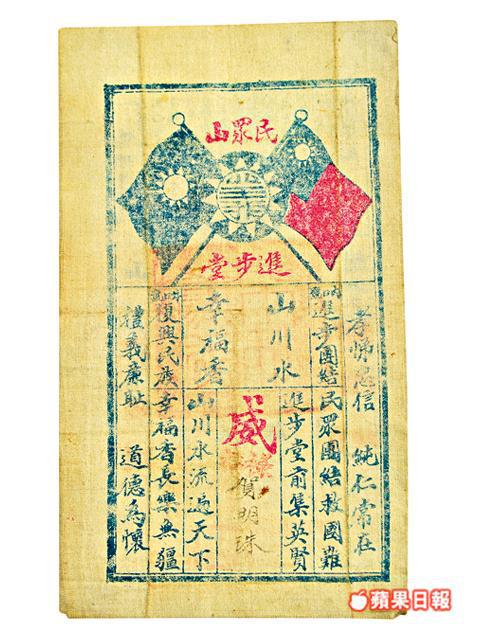 民眾山
進步堂
孝悌忠信 純仁常在
進步團結民眾團結救國難
山川水 進步堂前集英賢
威
賀明珠
幸福香 山川水流遍天下
復興民族幸福香長樂無疆
禮義廉恥 道德為懷
蘋果日報